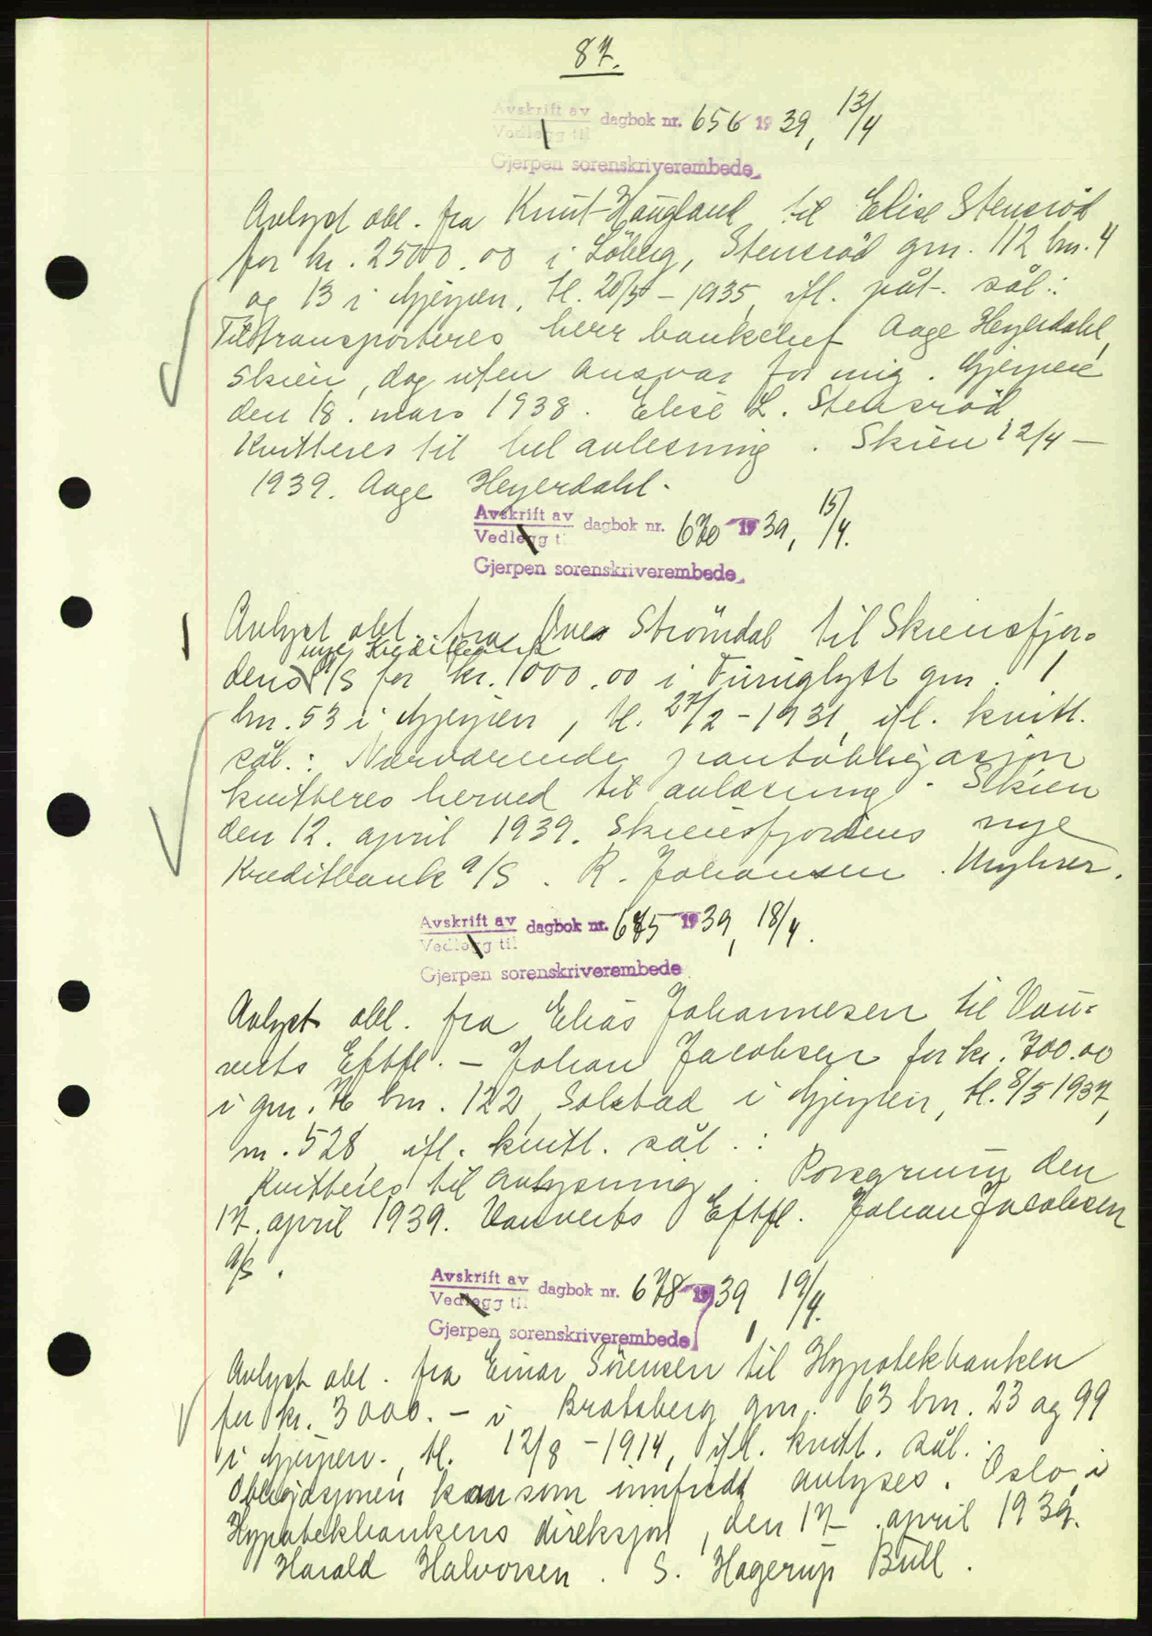 87.
Avskrift av
Vedlegg til dagbok nr. 656 1939, 13/4
Gjerpen sorenskriverembede.
Avlyst obl. fra Knut Haugland til Elise Stensrød
for kr. 2500.00 i Løberg, Stensrød gnr. 112 bnr. 4
og 13 i Gjerpen, tl. 20/5 - 1935, ifl. påt. sål:
Tiltransporteres herr banksjef Aage Heyerdahl,
Skien, dog uten ansvar for mig. Gjerpen
den 18. mars 1938. Elise L. Stensrød
Kvitteres til hel avlesning. Skien 12/4 -
1939. Aage Heyerdahl.
Avskrift av
Vedlegg til dagbok nr. 670 1939, 15/4.
Gjerpen sorenskriverembede.
Avlyst obl. fra Strömdal til Skiensfjor-
nye Kreditbank
dens A/S for kr. 1000.00 i Furuglytt gnr. 1
bnr. 53 i Gjerpen, tl. 27/2 - 1931, ifl. kvitt.
sål.: Nærværende pantobligasjon
kvitteres herved til avlæsning. Skien
den 12. april 1939. Skiensfjordens nye
Kreditbank a/S. R. Johansen.
Avskrift av
Vedlegg til dagbok nr. 675 1939, 18/4.
Gjerpen sorenskriverembede
Avlyst obl. fra Elias Johannesen til Vau-
verts Eftfl. - Johan Jacobsen for kr. 700.00
i gnr. bnr. 122, Solstad i Gjerpen, tl. 8/5 1937,
nr. 528 ifl. kvitt. sål.:
Kvitteres til avlysning. Porsgrunn den
17. april 1939. Vauverts Eftfl. Johan Jacobsen
a/s.
Avskrift av
Vedlegg til dagbok nr. 678 1939, 19/4.
Gjerpen sorenskriverembede
Avlyst obl. fra Einar Sørensen til Hypotekbanken
for kr. 3000.- i Bratsberg gnr. 63 bnr. 23 og 99
i Gjerpen, tl. 12/8 - 1914, ifl. kvitt. sål.:
Obligasjonen kan som innfridd avlyses. Oslo, i
Hypotekbankens direksjon, den 17. april 1939.
Harald Halvorsen. S. Hagerup Bull.